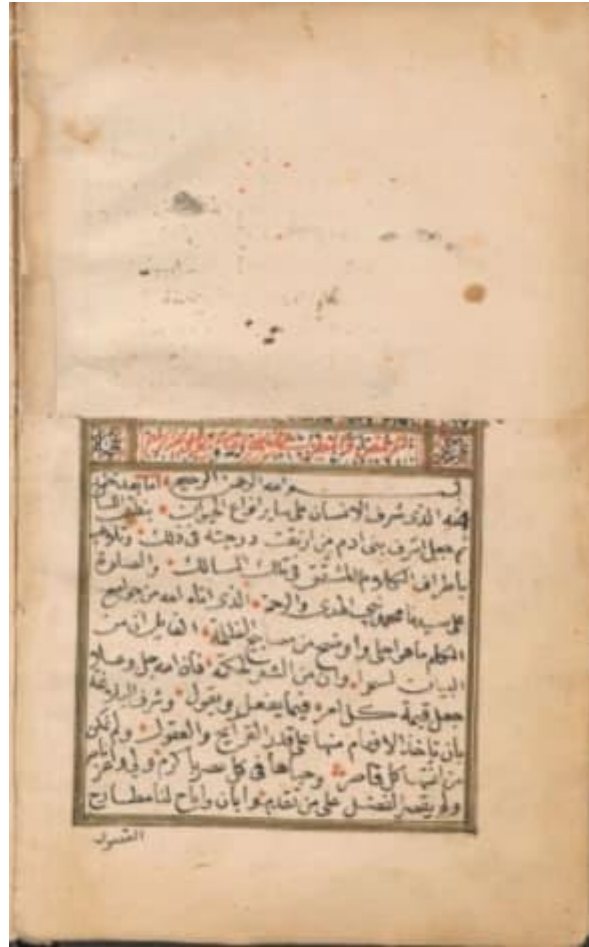 بسم الله الرحمن الرحيم اما بعد حمد
الله الذي شرف الانسان على ساير انواع الحيوان بنطق اللسان
ثم جعل اشرف بني ادم من ارتقت درجته في ذلك وتلاعب
باطراف الكلام المشقق في تلك المسالك والصلوة
على سيدنا محمد نبي الهدى والرحمة الذي اتاه الله من جوامع
الكلم ما هو اجلى واوضح من مصابيح الظلمة القايل ان من
البيان لسحرا وان من الشعر لحكمة فان الله جل وعلا
جعل قيمة كل امرء فيما يفعل ويقول وشرف البلاغة
بان تاخذ الافهام منها على قدر القرايح والعقول ولم تكن
من اثنتها كل قاصر وحباها في كل عصر باكرم ولي
ولم يقصر الفضل على من تقدم وابان واباح لنا مطارح